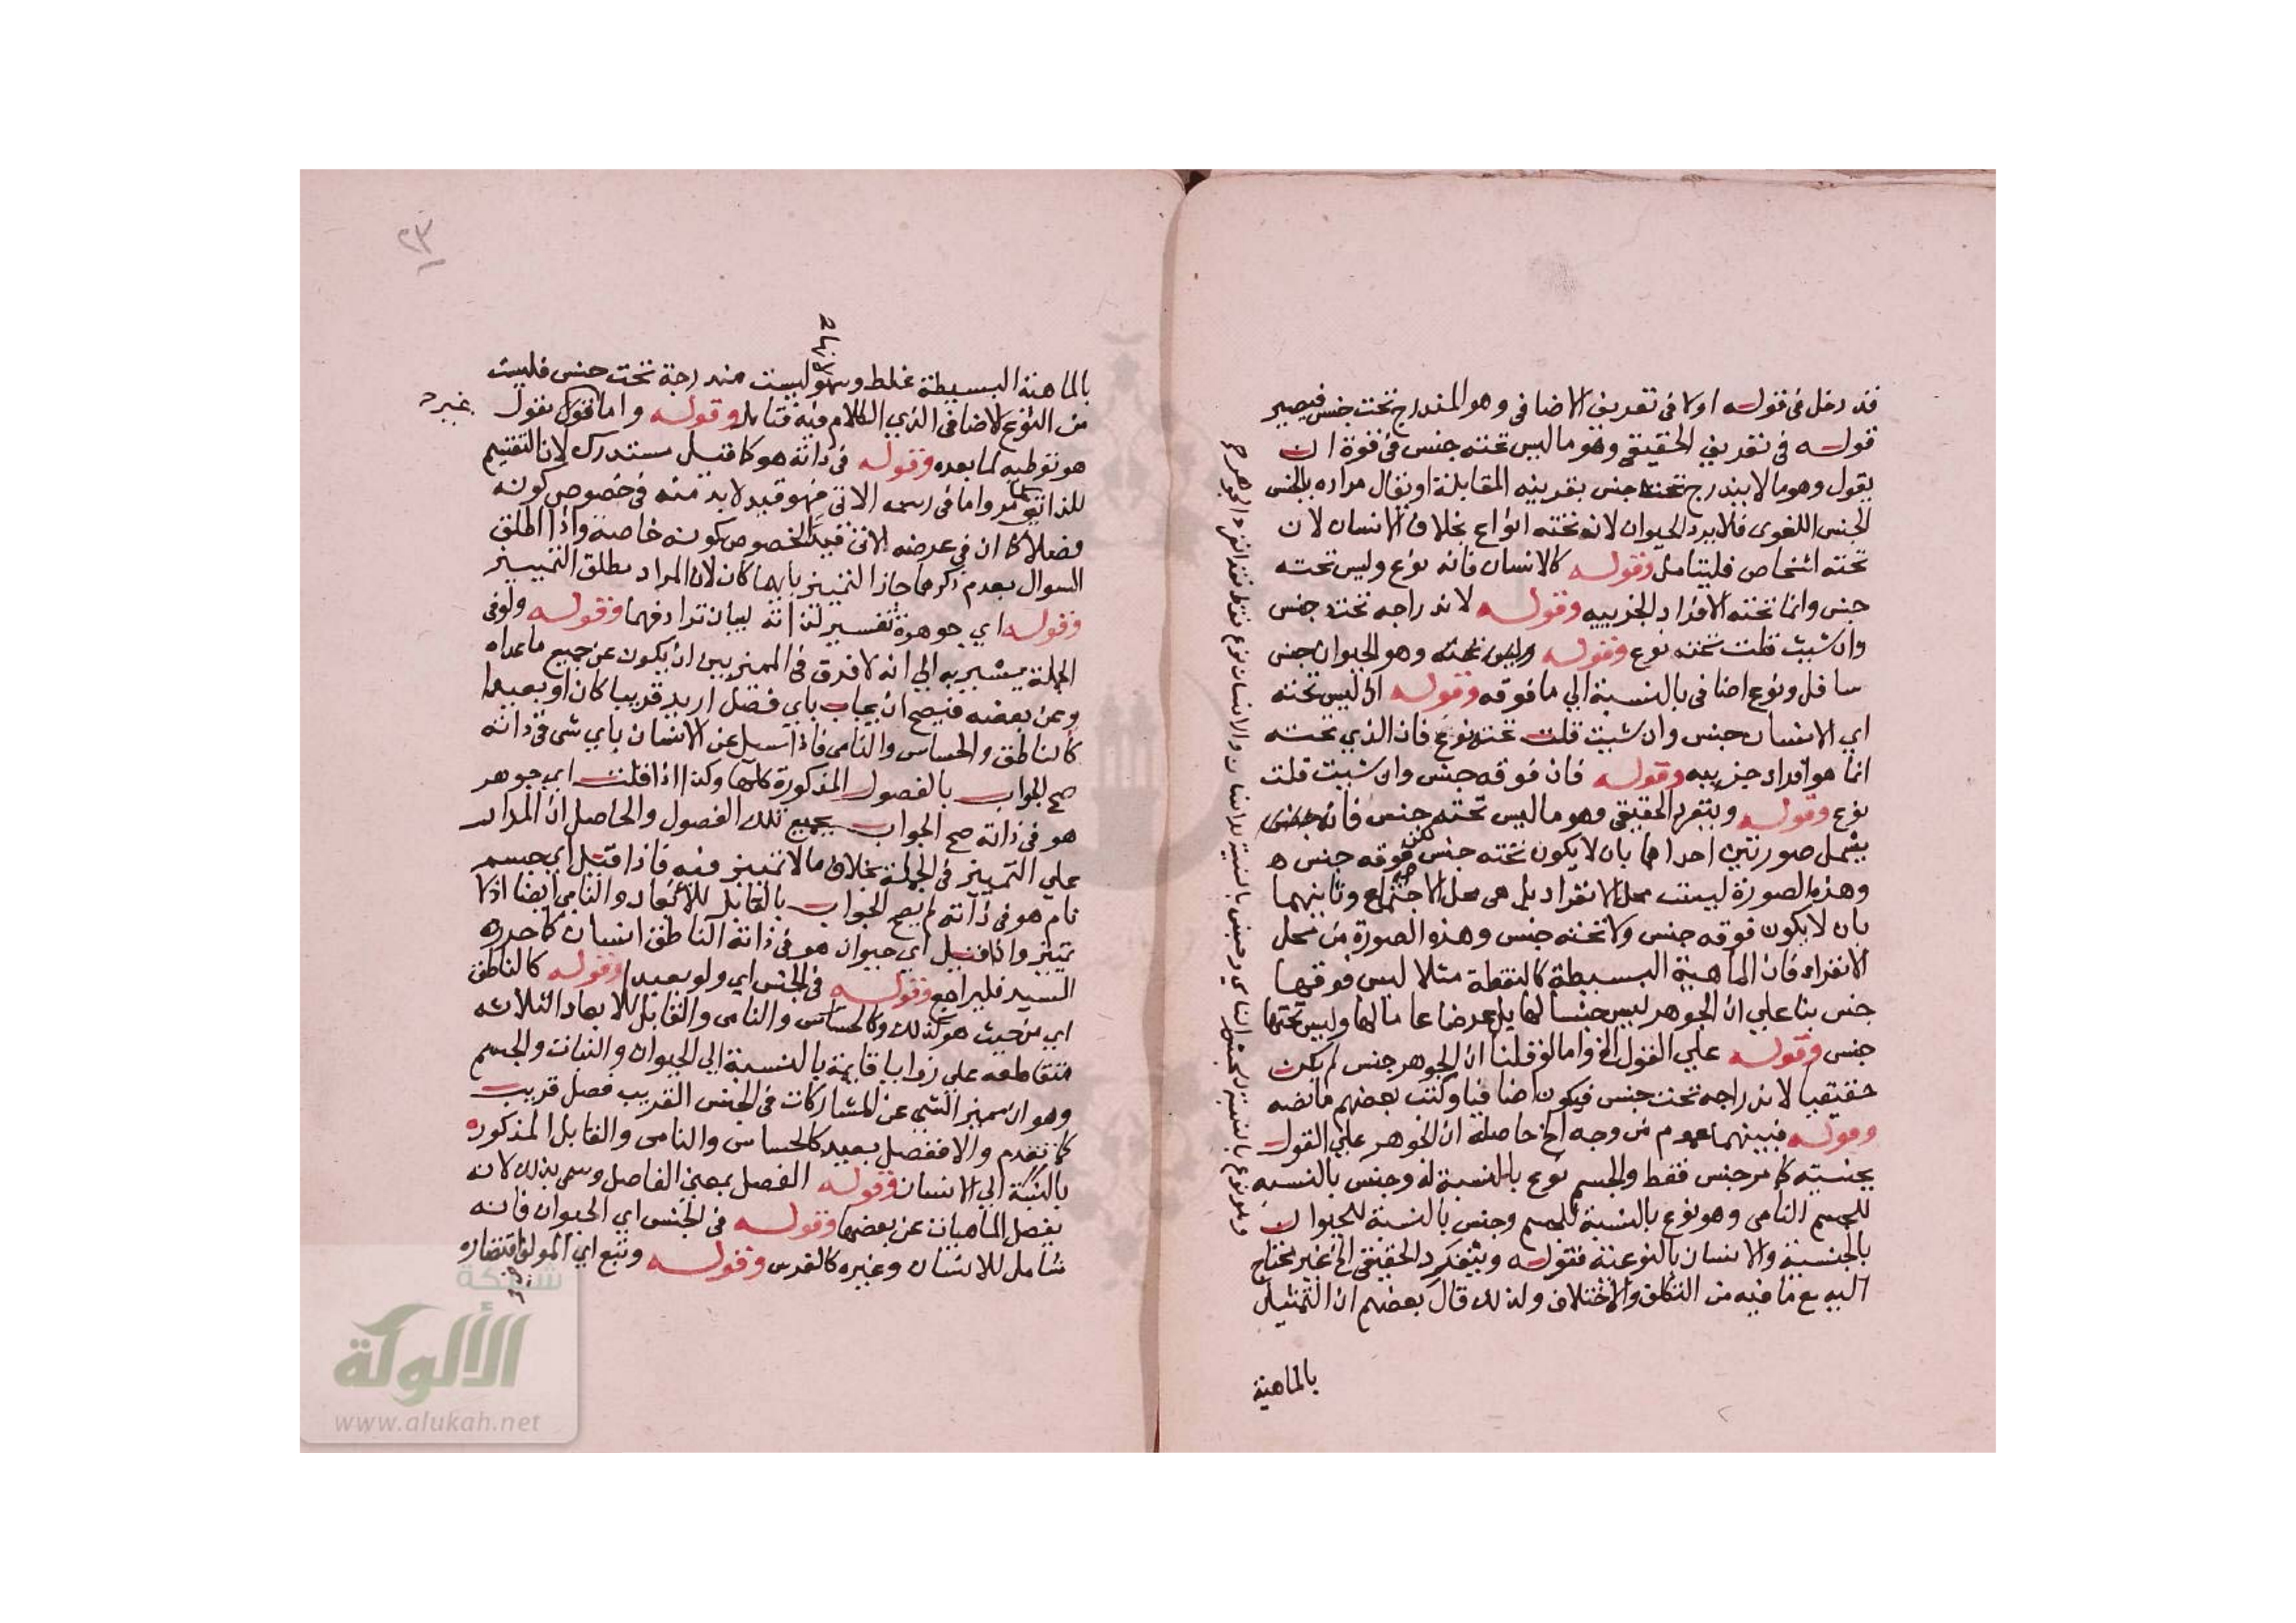 قد دخل في قوله اولا في تعريف الاضافي وهو المندرج تحت جنس فيصير
قوله في تعريف الحقيقي وهو ما ليس تحته جنس في قوة ان
يقول وهو ما لا يندرج تحته جنس بقرينه المقابلة او يقال مراده بالجنس
الجنس اللغوى فلا يرد الحيوان لانه تحته انواع بخلاف الانسان لان
تحته اشخاص فليتامل وقوله كالانسان فانه نوع وليس تحته
جنس وانما تحته الافراد الجزييه وقوله لاندراجه تحت جنس
وان شيت قلت تحته نوع وقوله وليس تحته وهو الحيوان جنس
سافل ونوع اضافي بالنسبة الي ما فوقه وقوله اذ ليس تحته
اي الانسان جنس وان شيت قلت تحته نوع فان الذي تحته
انما هو افراد جزييه وقوله فان فوقه جنس وان شيت قلت
نوع وقوله وينفرد الحقيقي وهو ما ليس تحته جنس فانه
يشمل صورتين احداهما بان لا يكون تحته جنس لكن فوقه جنس
وهذه الصورة ليست محل الانفراد بل هي محل الاجتماع وثانيهما
بان لا يكون فوقه جنس ولا تحته جنس وهذه الصورة من محل
الانفراد فان الماهية البسيطة كالنقطة مثلا ليس فوقها
جنس بنا علي ان الجوهر ليس جنسا لها بل عرضا عاما لها وليس تحتها
جنس وقوله علي القول الخ واما لو قلنا ان الجوهر جنس لم يكن
حقيقيا لاندراجه تحت جنس فيكون اضافيا وكتب بعضهم ما نصه
وقوله فبينهما عموم من وجه الخ حاصله ان الجوهر علي القول
بجنسيته كما مر جنس فقط والجسم نوع بالنسبة له وجنس بالنسبه
للجسم النامي وهو نوع بالنسبة للجسم وجنس بالنسبة للحيوان
بالجنسية والانسان بالنوعية فقوله وينفرد الحقيقي الخ غير محتاج
اليه مع ما فيه من التكلف والاختلاف ولذلك قال بعضهم ان التمثيل
بالماهية
٢٣
بالماهية البسيطة غلط وسهو لانها ليست مندرجة تحت جنس فليست
من النوع الاضافي الذي الكلام فيه فتامل وقوله واما قول يقول
هو توطيه لما بعده وقوله في ذاته هو كما قيل مستدرك لان التقسيم
للذاتي كما مر واما في رسمه الاتي فهو قيد لابد منه في خصوص كونه
فصلا كما ان في عرضه الاتي قيد لخصوص كونه خاصة واذا اطلق
السوال بعدم ذكرهما جاز التمييز بايهما كان لان المراد مطلق التمييز
وقوله اي جوهره تفسير لذاته لبيان ترادفهما وقوله ولو في
الجملة يشير به الي انه لا فرق في المميز بين ان يكون عن جميع ما عداه
وعن بعضه فيصح ان يجاب باي فصل اريد قريبا كان او بعيدا
كالناطق والحساس والنامي فاذا سيل عن الانسان باي شي في ذاته
صح الجواب بالفصول المذكورة كلها وكذا اذا قلت اي جوهر
هو في ذاته صح الجواب بجميع تلك الفصول والحاصل ان المدار
علي التمييز في الجملة بخلاف ما لا تمييز فيه فاذا قيل اي جسم
نام هو في ذاته لم يصح الجواب بالقابل للابعاد والنامي ايضا اذ لا
تمييز واذا قيل اي حيوان هو في ذاته الناطق انسان كما حرره
السيد فليراجع وقوله في الجنس اي ولو بعيدا وقوله كالناطق
اي من حيث هو كذلك وكالحساس والنامي والقابل للابعاد الثلاثه
متقاطعه علي زوايا قايمة بالنسبة الي الحيوان والنبات والجسم
وهو ان ميز الشي عن المشاركات في الجنس القريب فصل قريب
كما تقدم والا ففصل بعيد كالحساس والنامي والقابل المذكوره
بالنسبة الي الانسان وقوله الفصل بمعني الفاصل وسمي بذلك لانه
يفصل الماهيات عن بعضها وقوله في الجنس اي الحيوان فانه
شامل للانسان وغيره كالفرس وقوله وتبع اي المولف اقتصاره
شبكة
الألوكة
www.alukah.net